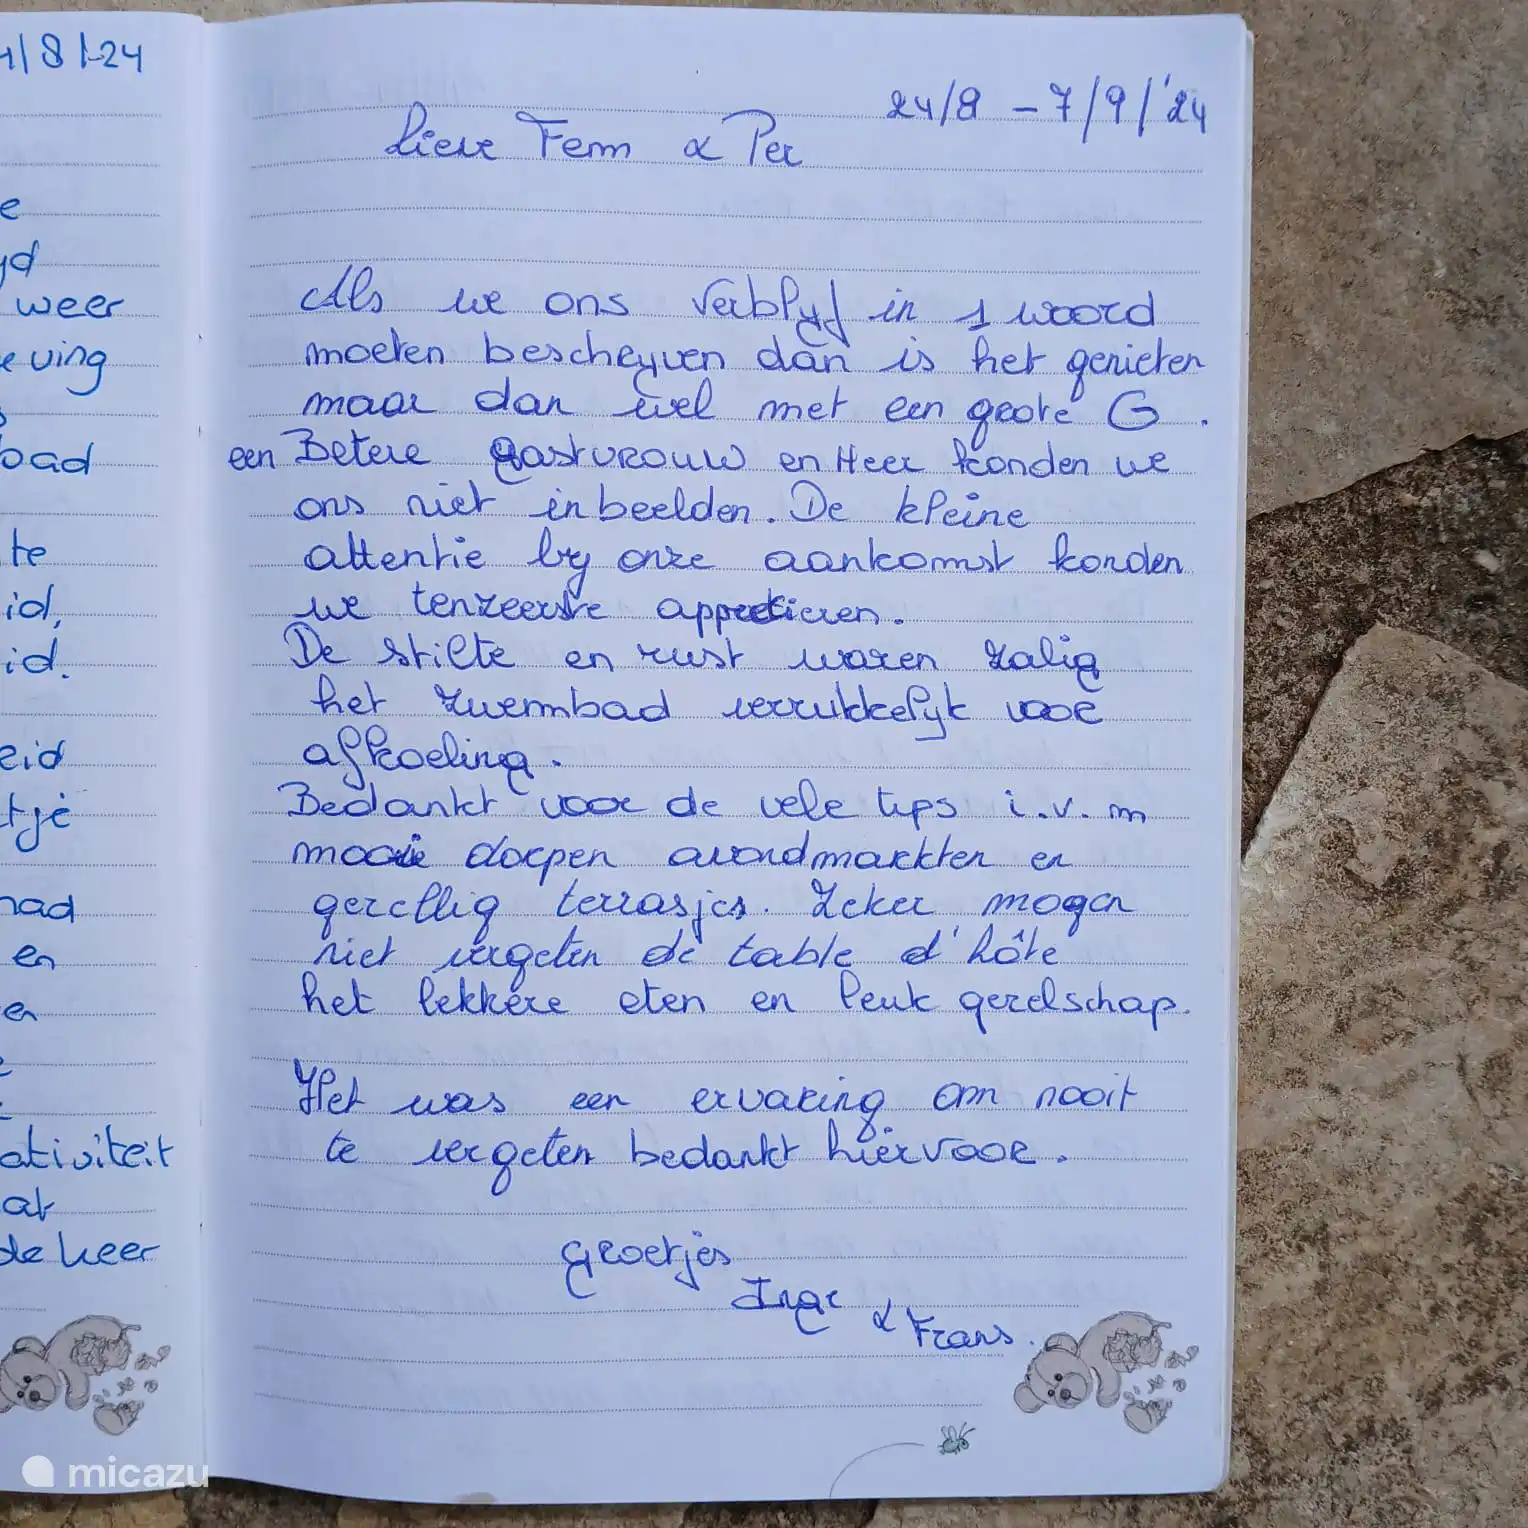 4/8/-24
e
yd
weer
eving
s
bad
te
id,
id.
eid
tje
had
en
en
ativiteit
at
de heer
24/8 - 7/9/'24
Lieve Fem & Per
Als we ons verblyf in 1 woord
moeten beschryven dan is het genieten
maar dan wel met een grote G.
een Betere gastvrouw en Heer konden we
ons niet inbeelden. De kleine
attentie by onze aankomst konden
we tenzeerste appreciëren.
De stilte en rust waren zalig
het zwembad verrukkelyk voor
afkoeling.
Bedankt voor de vele tips i.v.m
mooie dorpen avondmarkten en
gezellig terrasjes. Zeker mogen
niet vergeten de table d'hôte
het lekkere eten en leuk gezelschap.
Het was een ervaring om nooit
te vergeten bedankt hiervoor.
Groetjes
Inge
& Frans.
micazu